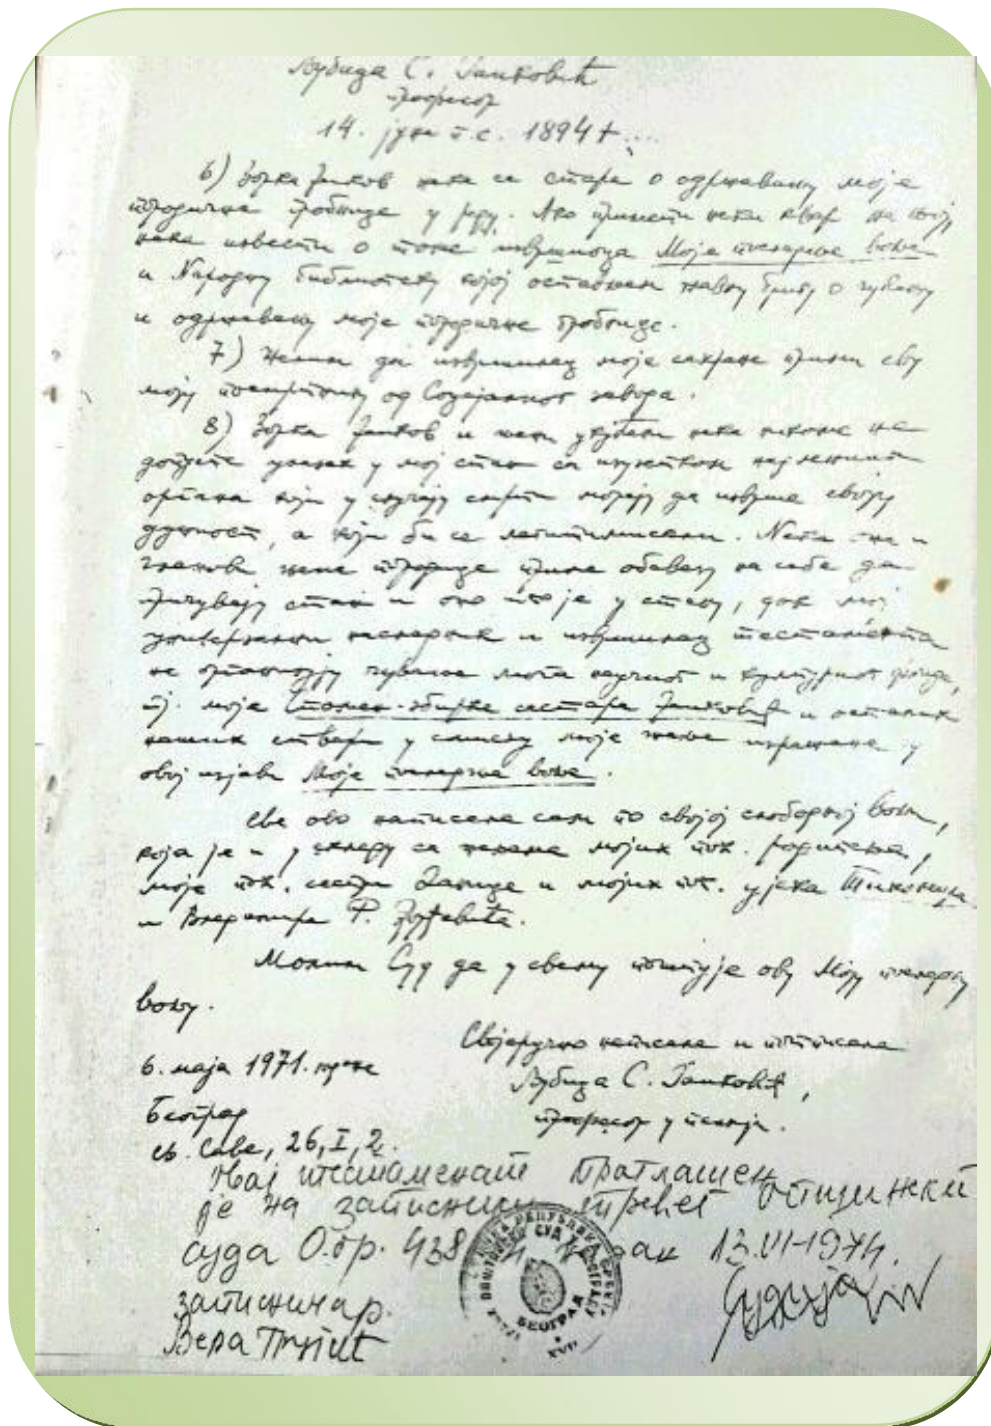 Љубица С. Јанковић
професор
14. јуна п.с. 1894 + ...
6) Зорка Јанков нека се стара о одржавању моје
породичне гробнице у реду. Ако примети неки квар на њој,
нека извести о томе извршиоца Моје последње воље
и Народну библиотеку којој остављам главну бригу о чувању
и одржавању моје породичне гробнице.
7) Желим да извршилац моје сахране прими сву
моју посмртнину од Социјалног завода.
8) Зорка Јанков и жени укућани нека никоме не
допусте улазак у мој стан са изузетком надлежних
органа који у случају смрти морају да изврше своју
дужност, а који би се легитимисали. Нека она и
чланови њене породице приме обавезу на себе да
причувају стан и оно што је у стану, док мој
наследник и извршилац тестамента
не организују чување мога научног и културног фонда,
тј. моја Спомен-збирка сестара Јанковић и осталих
наших ствари у смислу моје жеље изражене у
овој изјави Моје последње воље.
Све ово написала сам по својој слободној вољи,
која је и у складу са жељама мојих пок. родитеља,
моје пок. сестре Данице и мојих пок. ујака Тихомира
и Владимира Р. Ђорђевића.
Молим Суд да у свему поштује ову Моју последњу
вољу.
Својеручно написала и потписала
6. маја 1971. године
Љубица С. Јанковић,
Београд
професор у пензији.
св. Саве, 26, I, 2.
Овај тестаменат проглашен
је на записнику трећег општинског
суда О.бр. 438 дан 13.VI-1974.
записничар.
Вера
Судија
ОПШТИНСКИ СУД У БЕОГРАДУ
БЕОГРАД
XVII